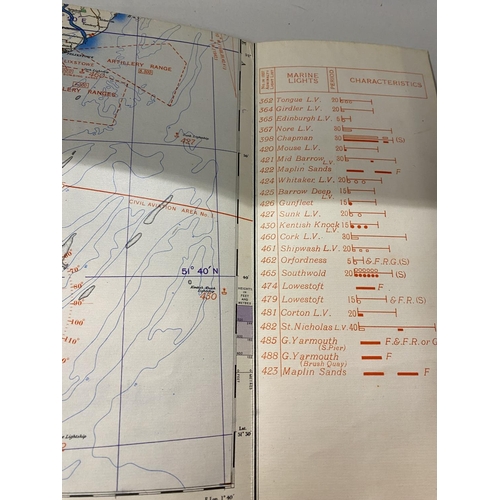 ARTILLERY RANGE
LLERY RANGES
427
CIVIL AVIATION AREA No.
51° 40' N
430
HEIGHTS
IN
FEET
AND
METRES
Lightship
Lat.
51° 30'
MARINE LIGHTS PERIOD CHARACTERISTICS
362 Tongue L.V. 20
364 Girdler L.V. 20
365 Edinburgh L.V. 5
367 Nore L.V. 30
398 Chapman 30 (S)
420 Mouse L.V. 20
421 Mid Barrow L.V. 30
422 Maplin Sands F
424 Whitaker, L.V. 20
425 Barrow Deep L.V. 15
426 Gunfleet 15
427 Sunk L.V. 20
430 Kentish Knock L.V. 15
460 Cork L.V. 30
461 Shipwash L.V. 20
462 Orfordness 5 & F.R.G.(S)
465 Southwold 20 (S)
474 Lowestoft F
479 Lowestoft 15 & F.R. (S)
481 Corton L.V. 20
482 St. Nicholas L.V. 40
485 G. Yarmouth F. & F.R. or G
(S. Pier)
488 G. Yarmouth F
(Brush Quay)
423 Maplin Sands F